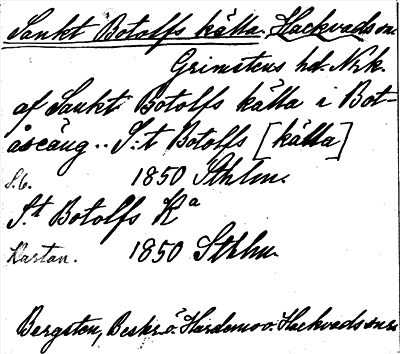 Sankt Botolfs källa. Hackvads sn
Grimstens hd. Nrk.
af Sankt Botolfs källa i Bot-
åsäng.. S:t Botolfs [källa]
S. 6. 1850 Sthlm.
S.t Botolfs Ka
Kartan. 1850 Sthlm.
Bergsten, Beskr. ö. Hardemo o. Hackvads snr